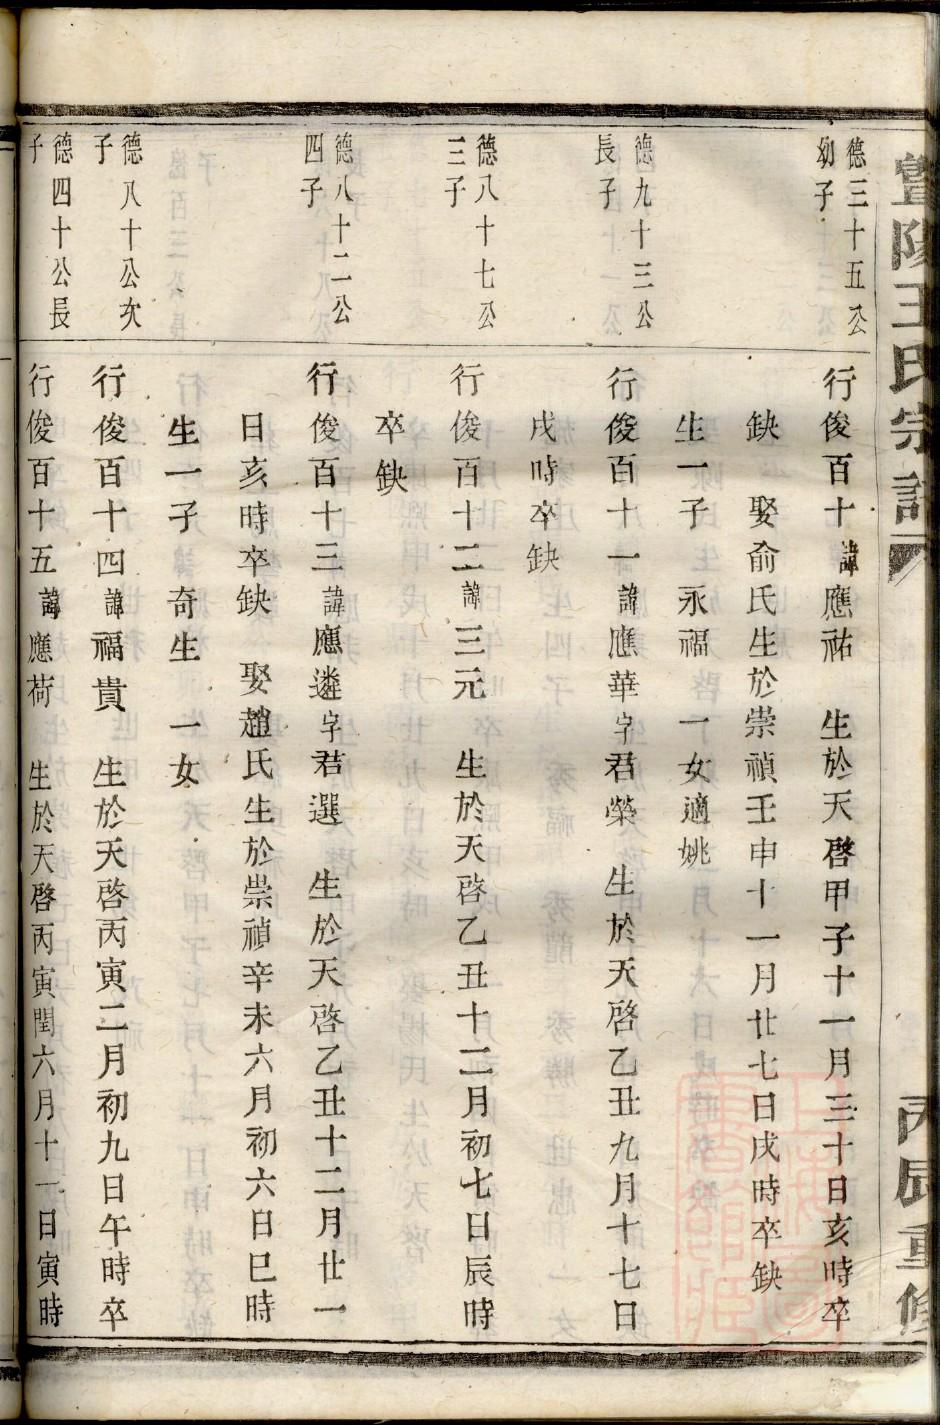 暨陽王氏宗譜
丙辰重修
德三十五公
幼子
行俊百十諱應祐 生於天啓甲子十一月三十日亥時卒
缺 娶俞氏生於崇禎壬申十一月廿七日戌時卒缺
生一子 永福 一女適姚
德九十三公
長子
行俊百十一諱應華字君榮 生於天啓乙丑九月十七日
戌時卒缺
德八十七公
三子
行俊百十二諱三元 生於天啓乙丑十二月初七日辰時
卒缺
德八十二公
四子
行俊百十三諱應遴字君選 生於天啓乙丑十二月廿一
日亥時卒缺 娶趙氏生於崇禎辛未六月初六日巳時
生一子 奇生 一女
德八十公次
子
行俊百十四諱福貴 生於天啓丙寅二月初九日午時卒
德四十公長
子
行俊百十五諱應荷 生於天啓丙寅閏六月十一日寅時